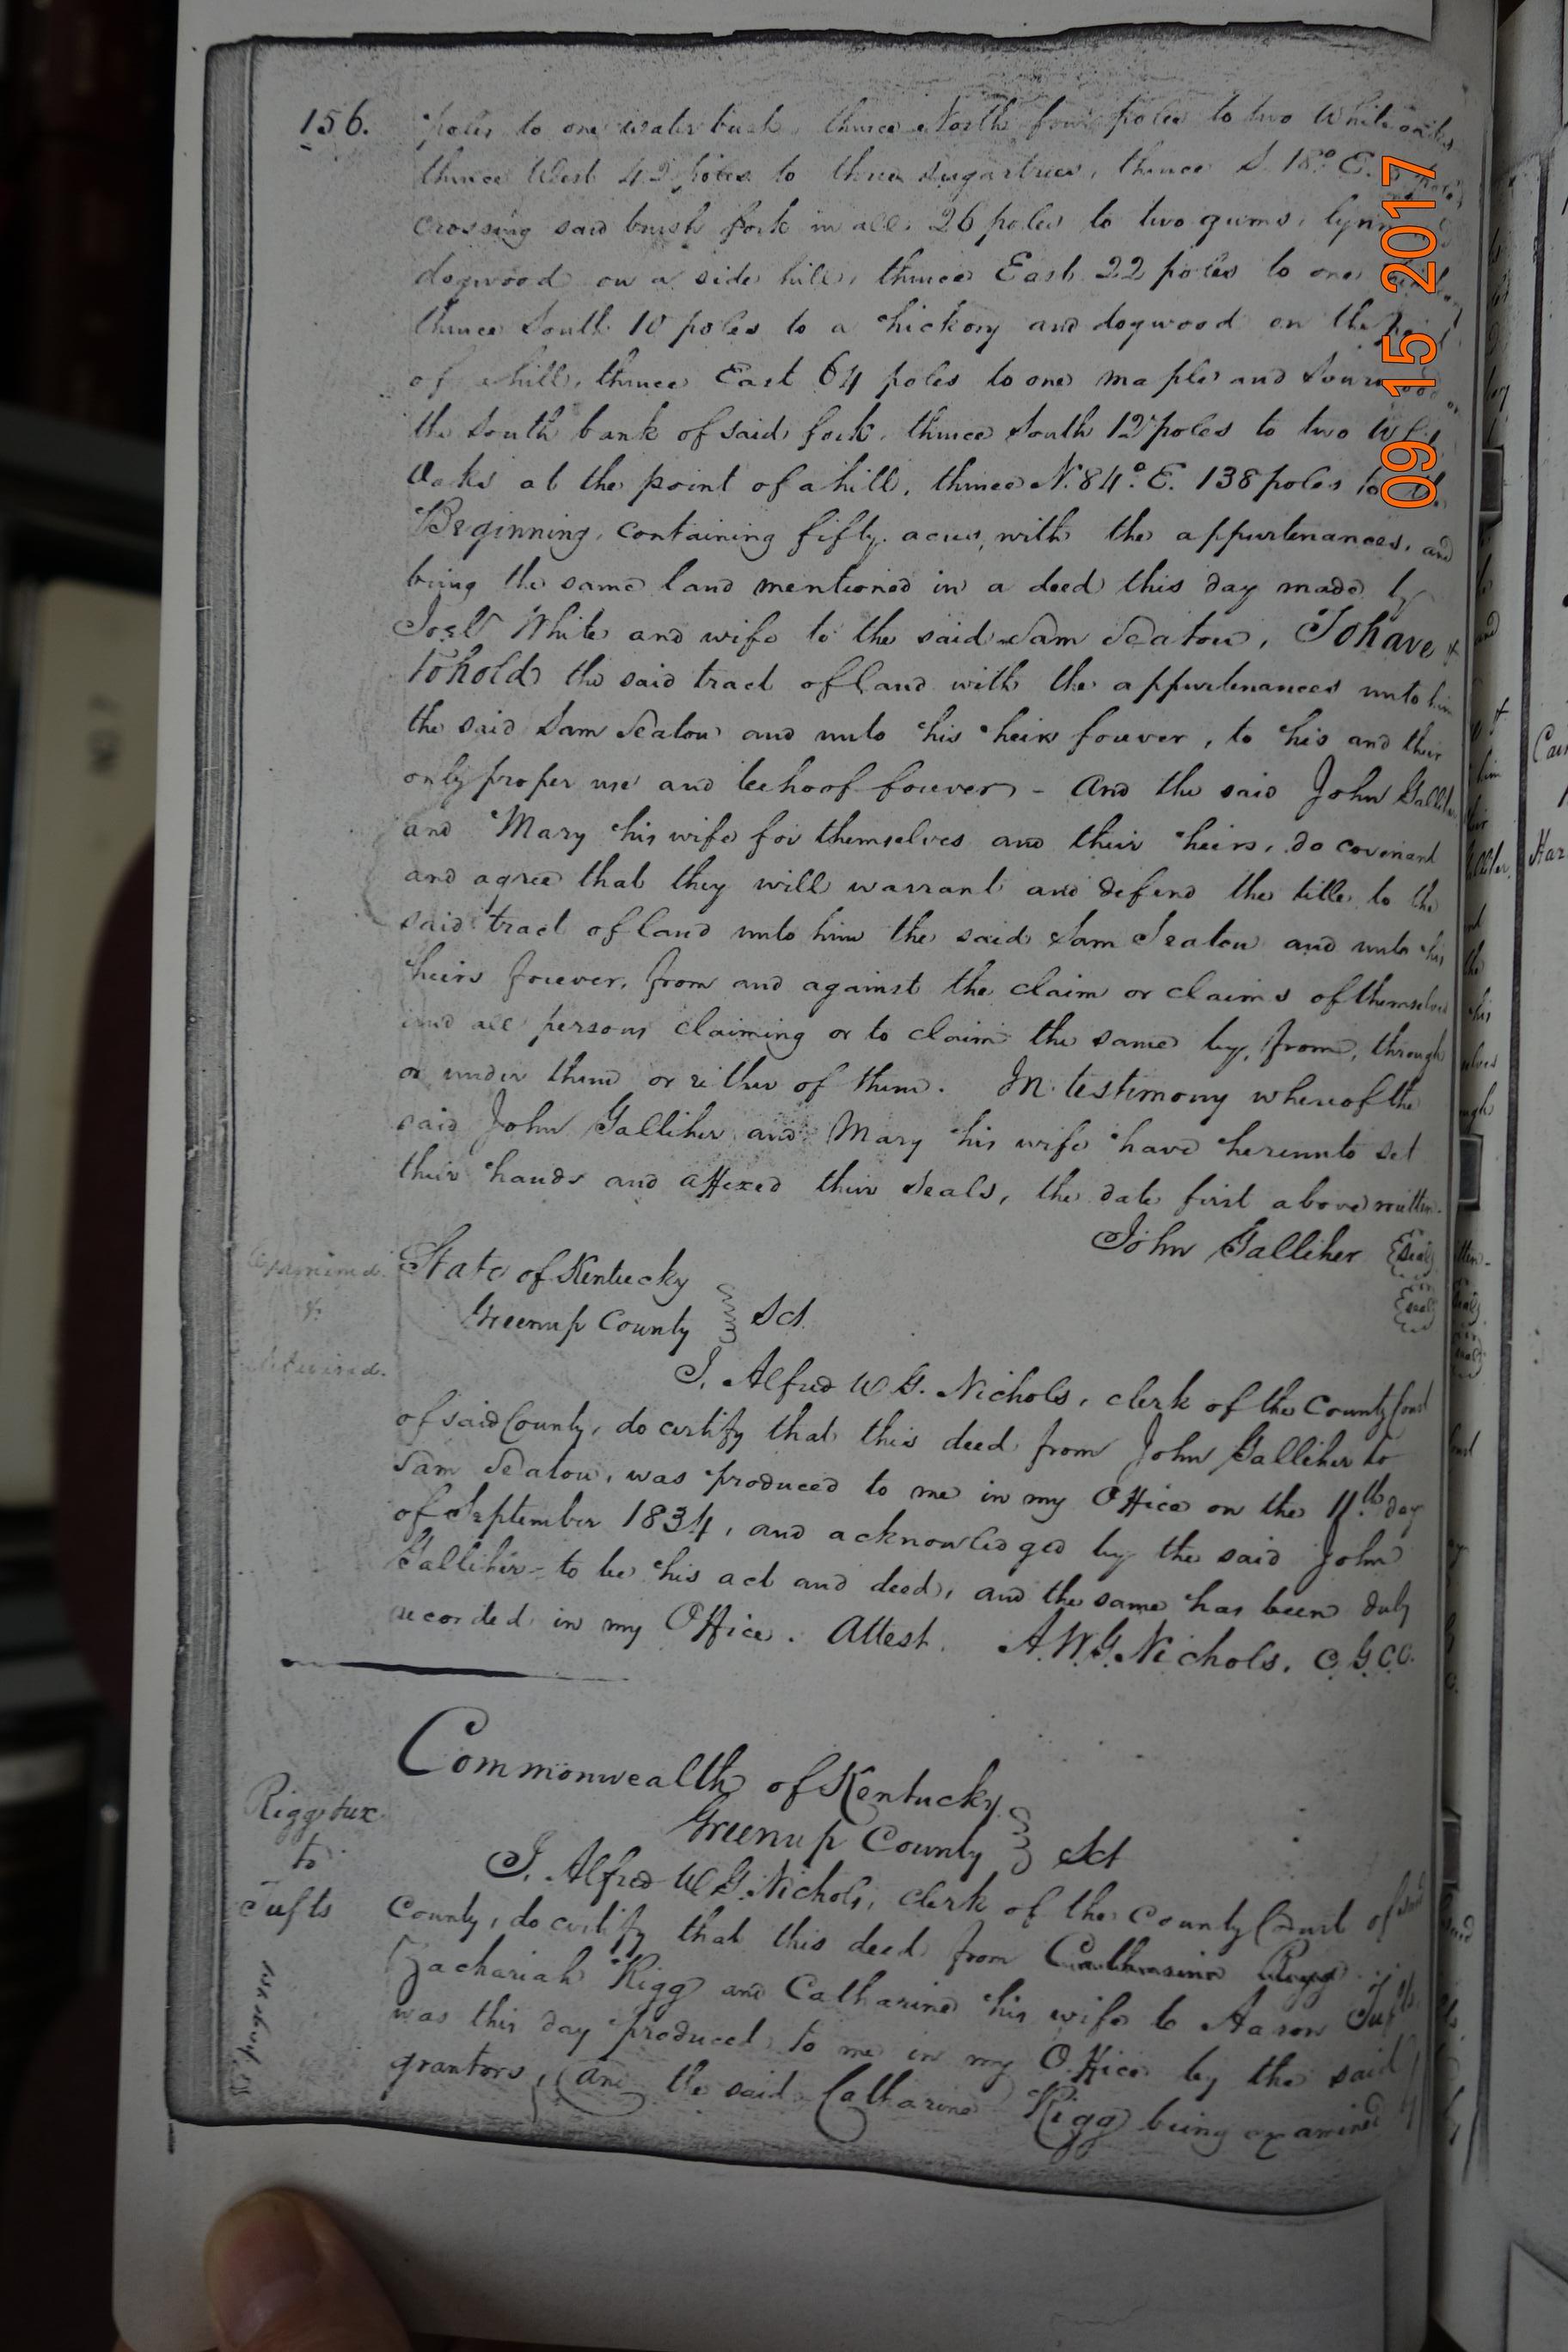 156.
poles to one water bush, thence North four poles to two White oaks
thence West 42 poles to three sugartrees, thence S. 18° E.
crossing said brush fork in all, 26 poles to two gums, lynn
dogwood on a side hill, thence East 22 poles to one
thence South 10 poles to a hickory and dogwood on the point
of a hill, thence East 64 poles to one maple and Sourwood on
the South bank of said fork, thence South 12 poles to two White
Oaks at the point of a hill, thence N. 84° E. 138 poles to the
Beginning, containing fifty acres, with the appurtenances, and
being the same land mentioned in a deed this day made by
Joel White and wife to the said Sam Seaton, To have &
To hold the said tract of land with the appurtenances unto him
the said Sam Seaton and unto his heirs forever, to his and their
only proper use and behoof forever - And the said John Galliher
and Mary his wife for themselves and their heirs, do covenant
and agree that they will warrant and defend the title to the
said tract of land unto him the said Sam Seaton and unto his
heirs forever, from and against the claim or claims of themselves
and all persons claiming or to claim the same by, from, through
or under them or either of them. In testimony whereof the
said John Galliher and Mary his wife have hereunto set
their hands and affixed their Seals, the date first above written.
John Galliher Seal
Seal
Examined
&
delivered.
State of Kentucky
Greenup County Sct.
I, Alfred W G. Nichols, clerk of the County Court
of said County, do certify that this deed from John Galliher to
Sam Seaton, was produced to me in my Office on the 11th day
of September 1834, and acknowledged by the said John
Galliher to be his act and deed, and the same has been duly
recorded in my Office. Attest. A.W.G. Nichols, C.G.C.C.
Rigg &ux
to
Tufts
Commonwealth of Kentucky
Greenup County Sct
I, Alfred W G. Nichols, clerk of the County Court of said
County, do certify that this deed from Catharine Rigg
Zachariah Rigg and Catharine his wife to Aaron Tufts
was this day produced to me in my Office by the said
grantors, (and the said Catharine Rigg being examined
09 15 2017